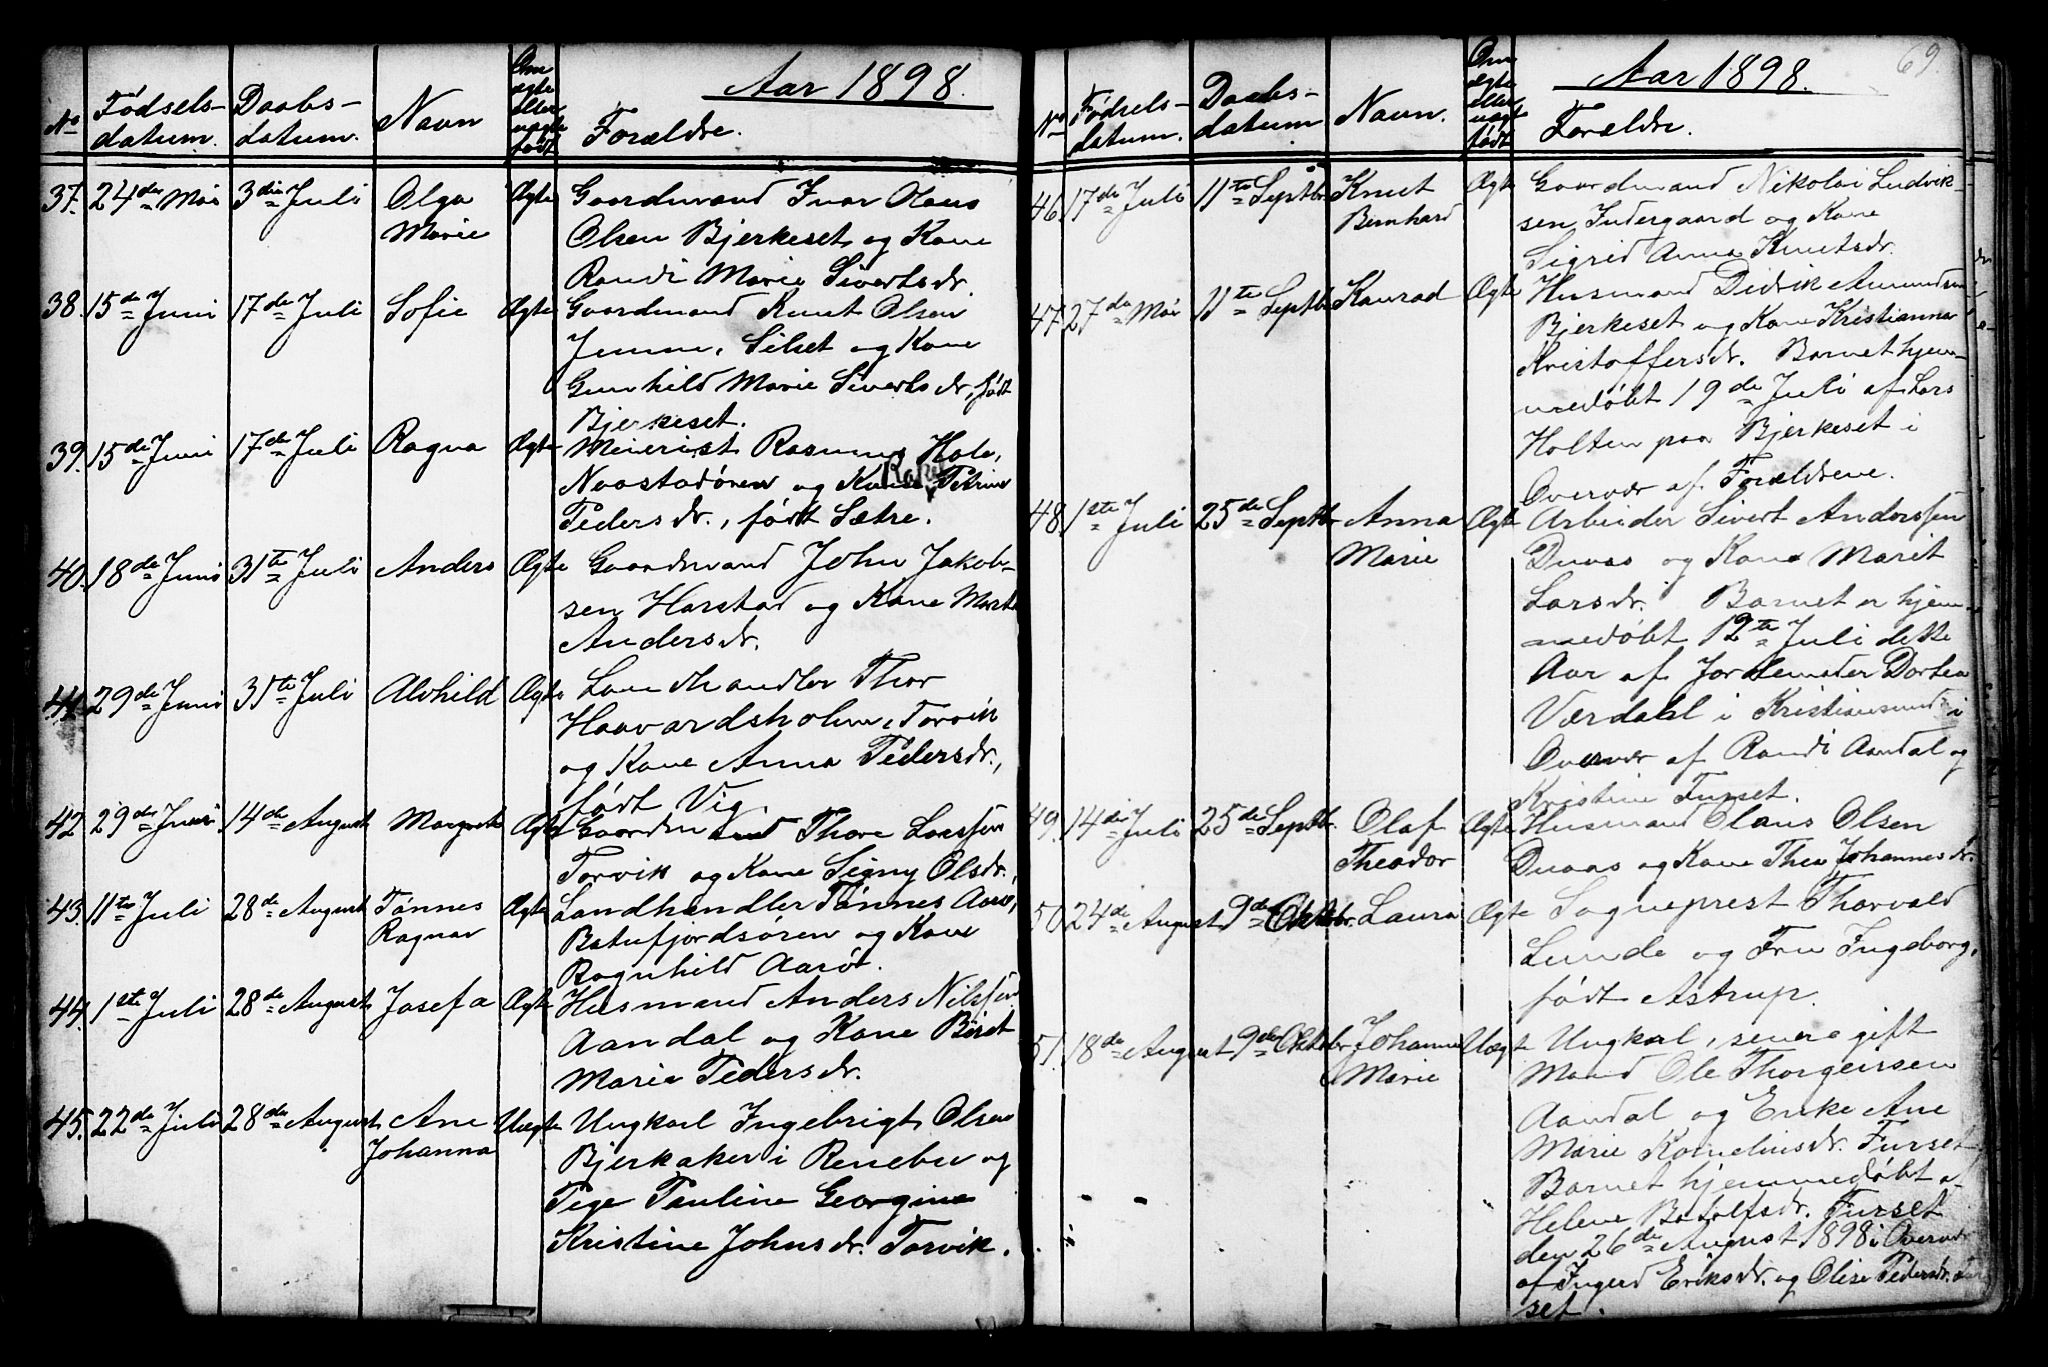 Aar 1898.
No
Fødsels-
datum.
Daabs-
datum.
Navn
Om
ægte
eller
uægte
født
Forældre.
37. 24de Mai 3die Juli Olga
Marie
Ægte Gaardmand Ivar Olaus
Olsen Bjerkeset og Kone
Randi Marie Sivertsdr.
38. 15de Juni 17de Juli Sofie Ægte Gaardmand Knut Olsen
Silset og Kone
Gunhild Marie Sivertsdr., født
Bjerkeset.
39. 15de Juni 17de Juli Ragna Ægte Meierist Rasmus Hole,
og Kone Petrine
Pedersdr., født Sætre.
40. 18de Juni 31te Juli Anders Ægte Gaardmand John Jakob-
sen Harstad og Kone
Andersdr.
41. 29de Juni 31te Juli Alvhild Ægte Landhandler Thor
Haavardsholm, Torvik
og Kone Anna Pedersdr.,
født Vig.
42. 29de Juni 14de August Margrete Ægte Gaardmand Thore Larssen
Torvik og Kone Signy Olsdr.
43. 11te Juli 28de August Tønnes
Ragnar
Ægte Landhandler Tønnes Aarø,
Batnfjordsøren og Kone
Ragnhild Aarø.
44. 1ste Juli 28de August Josefa Ægte Husmand Anders Nilssen
Aandal og Kone Beret
Marie Pedersdr.
45. 22de Juli 28de August Ane
Johanna
Uægte Ungkarl Ingebrigt Olsen
Bjerkaker i Renebu og
Pige Pauline Georgine
Kristine Johnsdr. Torvik.
69.
Aar 1898.
No
Fødsels-
datum.
Daabs-
datum
Navn.
Om
ægte
eller
uægte
født
Forældre.
46. 17de Juli 11te Septbr. Knut
Bernhard
Ægte Gaardmand Nikolai Ludvik-
sen Indergaard og Kone
Sigrid Anna Knutsdr.
47. 27de Mai 11te Septbr. Konrad Ægte Husmand Didrik Amundsen
Bjerkeset og Kone Kristianna
Kristoffersdr. Barnet hjem-
medøbt 19de Juli af Lars
Holten paa Bjerkeset i
Overvær af Forældrene.
48. 1ste Juli 25de Septbr. Anna
Marie
Ægte Arbeider Sivert Anderssen
Duaas og Kone Marit
Larsdr. Barnet er hjem-
medøbt 12te Juli dette
Aar af Jordemoder Dorthea
Værdahl i Kristiansund i
Overvær af Randi Aandal og
Kristine Furset.
49. 14de Juli 25de Septbr. Olaf
Theodor
Ægte Husmand Olaus Olsen
Duaas og Kone Thea Johannesdr.
50. 24de August 9de Oktbr. Laura Ægte Sogneprest Thorvald
Lunde og Fru Ingeborg,
født Astrup.
51. 18de August 9de Oktbr. Johanna
Marie
Uægte Ungkarl, senere gift
Mand Ole Thorgeirsen
Aandal og Enke Ane
Marie Kornelinsdr. Furset
Barnet hjemmedøbt a-
Helene Botolfsdr. Furset
den 26de August 1898 i Overvær
af Ingerd Eriksdr. og Olise Pedersdr. Fur
set.